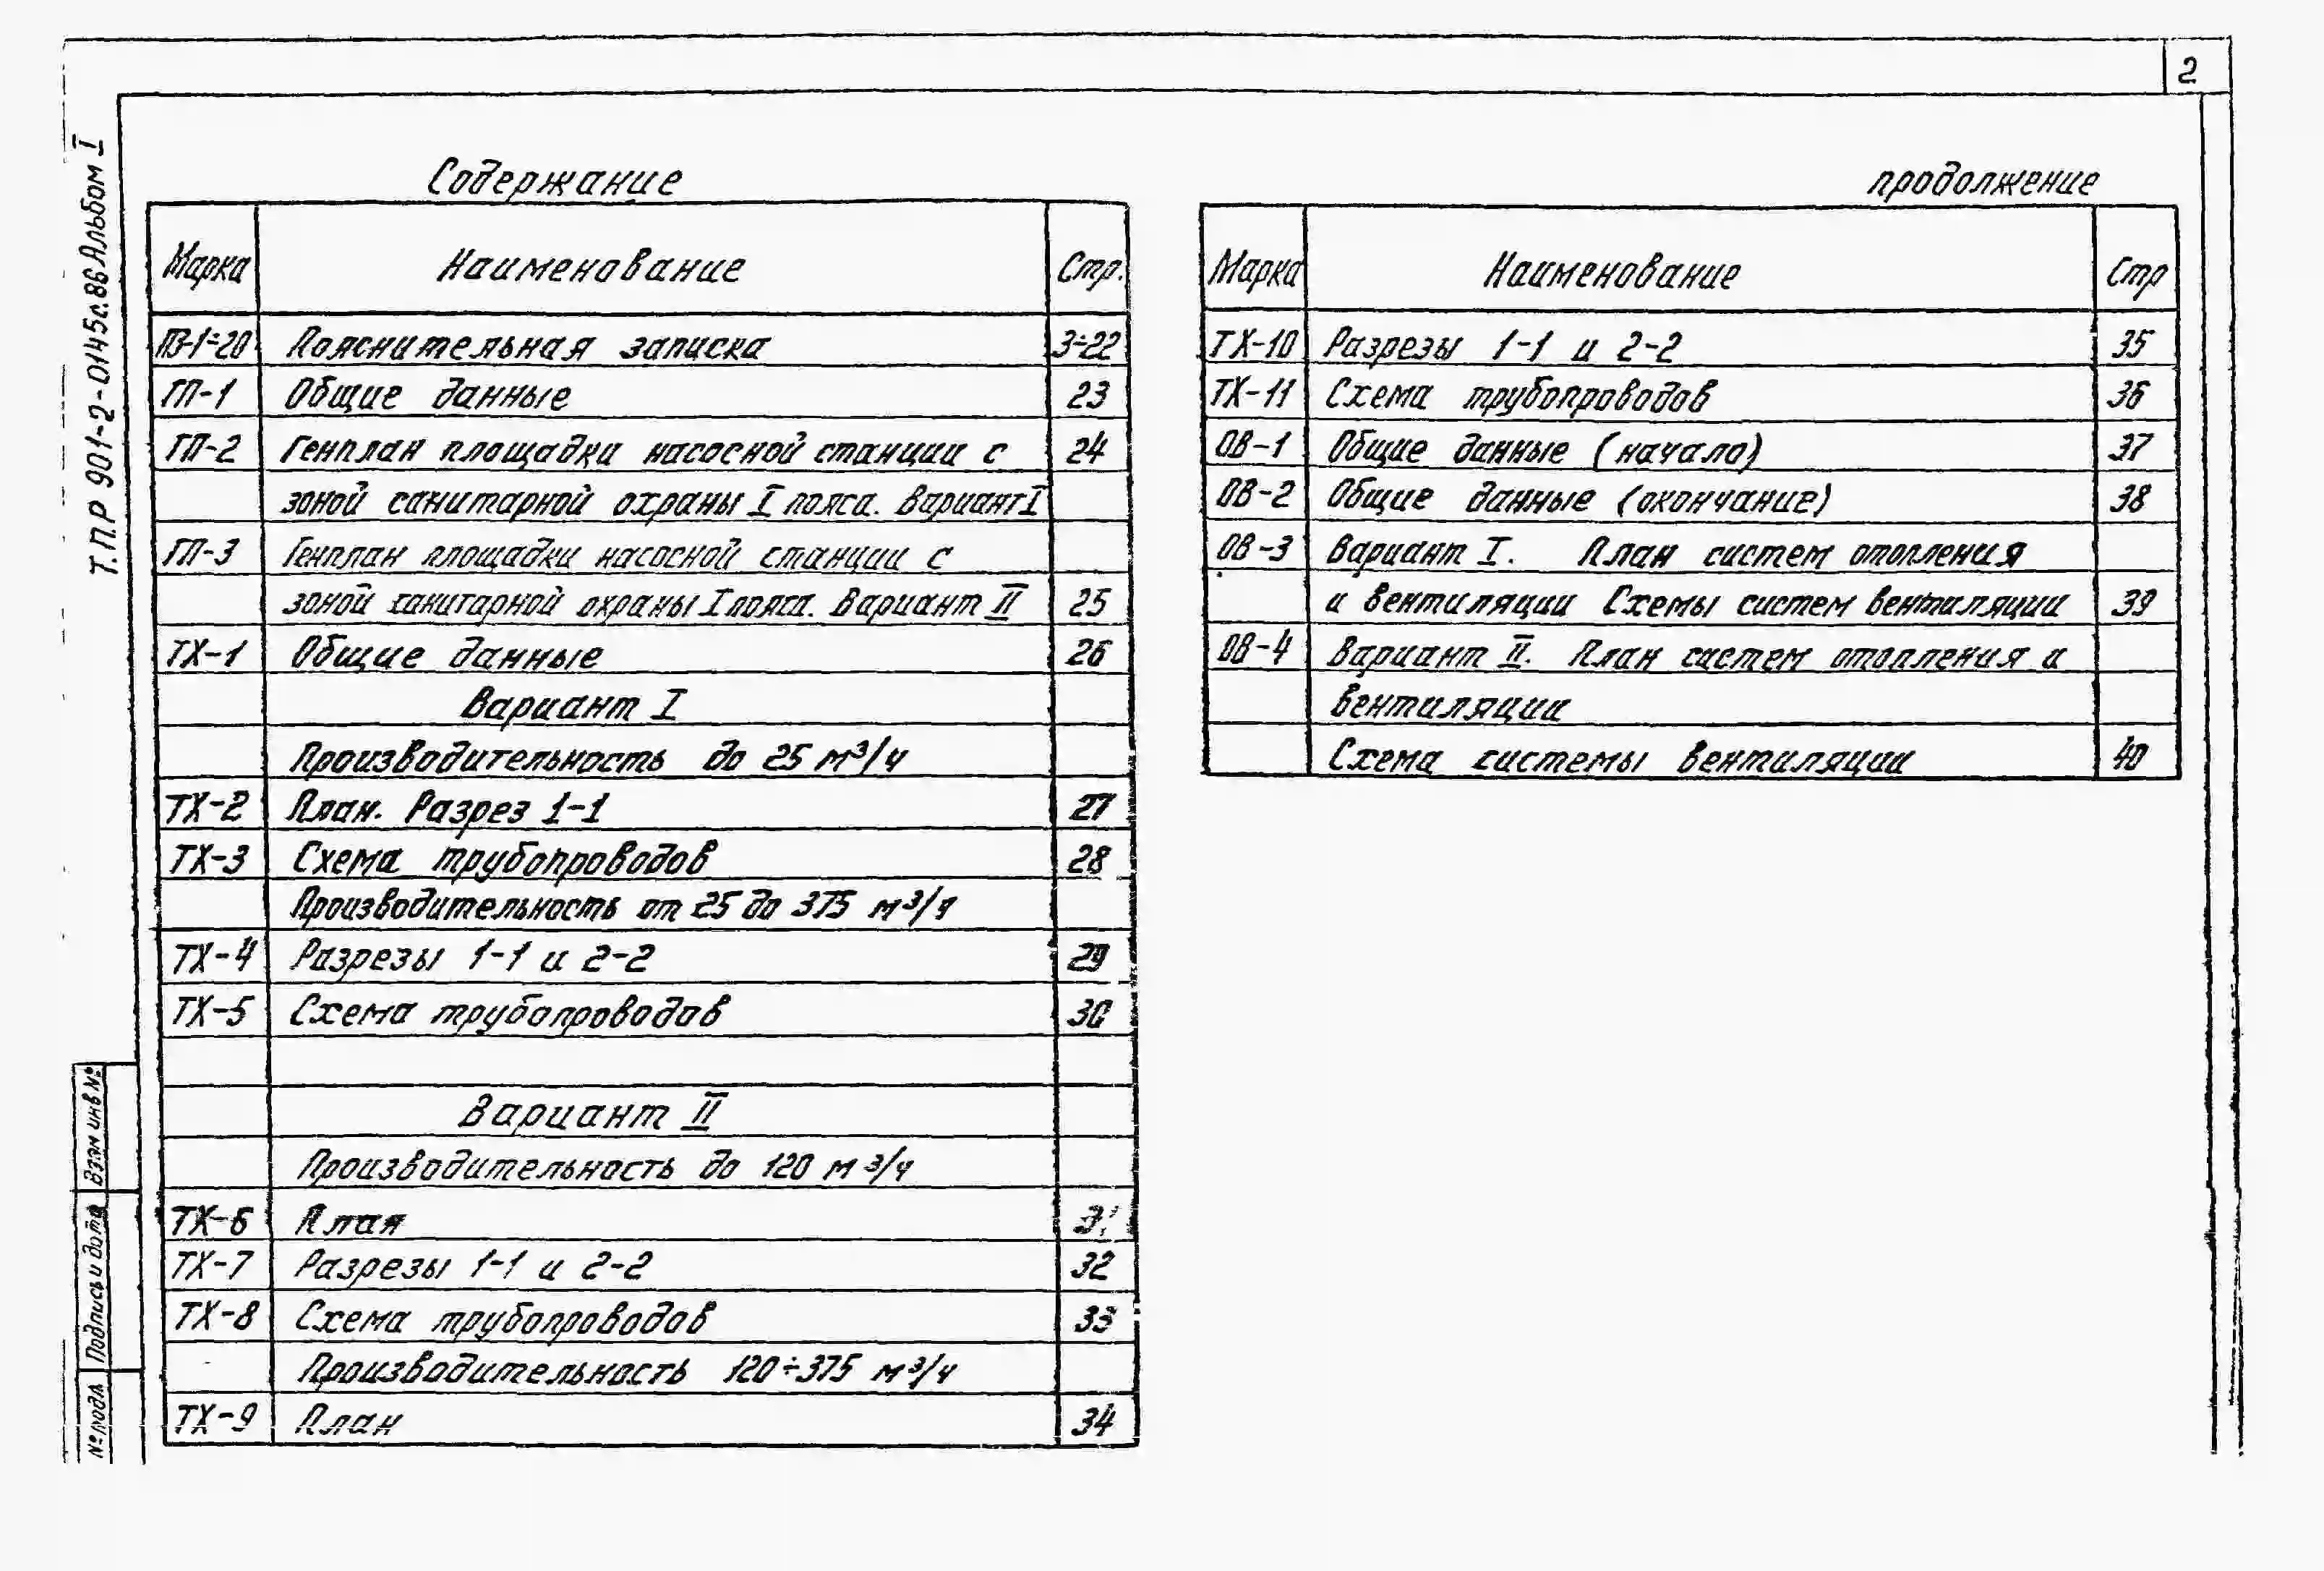 2
Т.П.Р 901-2-0145с.86 Альбом I
Содержание
Марка Наименование Стр.
ПЗ-1÷20 Пояснительная записка 3÷22
ГП-1 Общие данные 23
ГП-2 Генплан площадки насосной станции с 24
зоной санитарной охраны I пояса. Вариант I
ГП-3 Генплан площадки насосной станции с
зоной санитарной охраны I пояса. Вариант II 25
ТХ-1 Общие данные 26
Вариант I
Производительность до 25 м³/ч
ТХ-2 План. Разрез 1-1 27
ТХ-3 Схема трубопроводов 28
Производительность от 25 до 375 м³/ч
ТХ-4 Разрезы 1-1 и 2-2 29
ТХ-5 Схема трубопроводов 30
Вариант II
Производительность до 120 м³/ч
ТХ-6 План
ТХ-7 Разрезы 1-1 и 2-2 32
ТХ-8 Схема трубопроводов 33
Производительность 120÷375 м³/ч
ТХ-9 План 34
продолжение
Марка Наименование Стр
ТХ-10 Разрезы 1-1 и 2-2 35
ТХ-11 Схема трубопроводов 36
ОВ-1 Общие данные (начало) 37
ОВ-2 Общие данные (окончание) 38
ОВ-3 Вариант I. План систем отопления
и вентиляции Схемы систем вентиляции 39
ОВ-4 Вариант II. План систем отопления и
вентиляции
Схема системы вентиляции 40
Взам инв №
Подпись и дата
№ подл